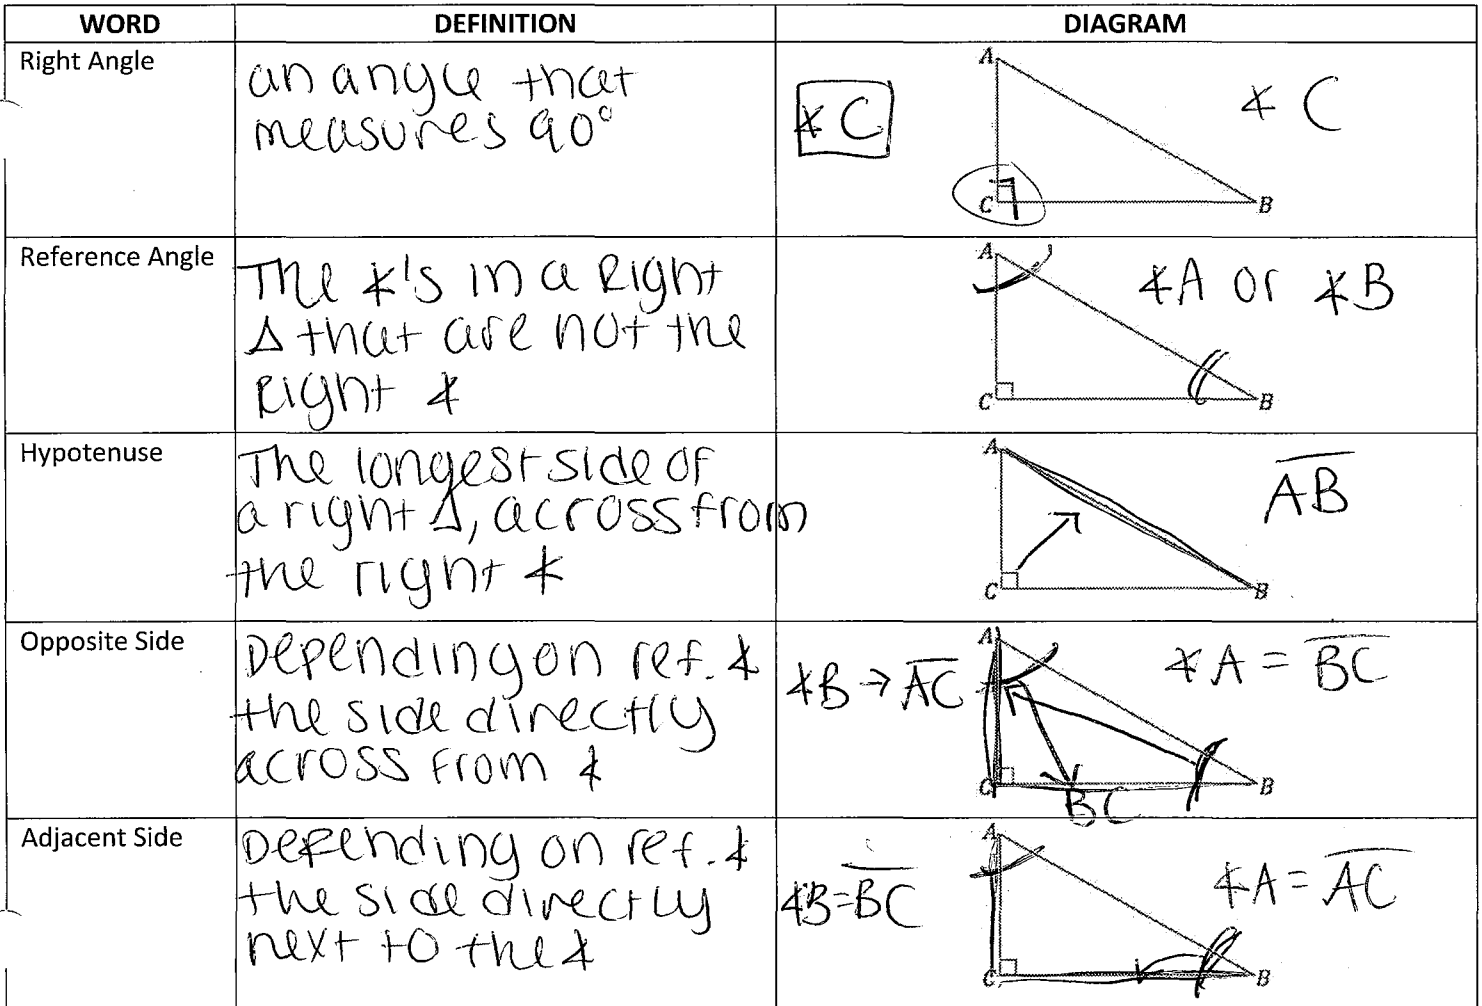 WORD DEFINITION DIAGRAM
Right Angle
an angle that
measures 90°
∡C
A
C
B
∡ C
Reference Angle
The ∡'s in a Right
Δ that are not the
Right ∡
A
C
B
∡A or ∡B
Hypotenuse
The longest side of
a right Δ, across from
the right ∡
A
C
B
A̅B̅
Opposite Side
Depending on ref. ∡
the side directly
across from ∡
∡B → A̅C̅
A
C
B
BC
∡A = B̅C̅
Adjacent Side
Depending on ref. ∡
the side directly
next to the ∡
∡B = B̅C̅
A
C
B
∡A = A̅C̅